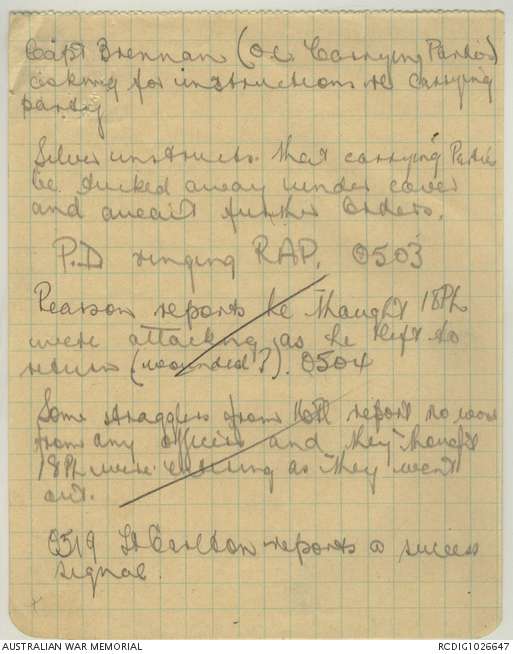 Capt Brennan (OC Carrying Parties)
asking for instructions re carrying
party
Silver instructs that carrying Parties
be tucked away under cover
and await further orders.
P.D ringing RAP. 0503
Pearson reports he thought 18Pl
were attacking as he left to
return (wounded?). 0504
Some stragglers from report no word
from any officers and they thought
18Pl were entering as they went
out.
0519 Lt Carlton reports a success
signal.
AUSTRALIAN WAR MEMORIAL
RCDIG1026647